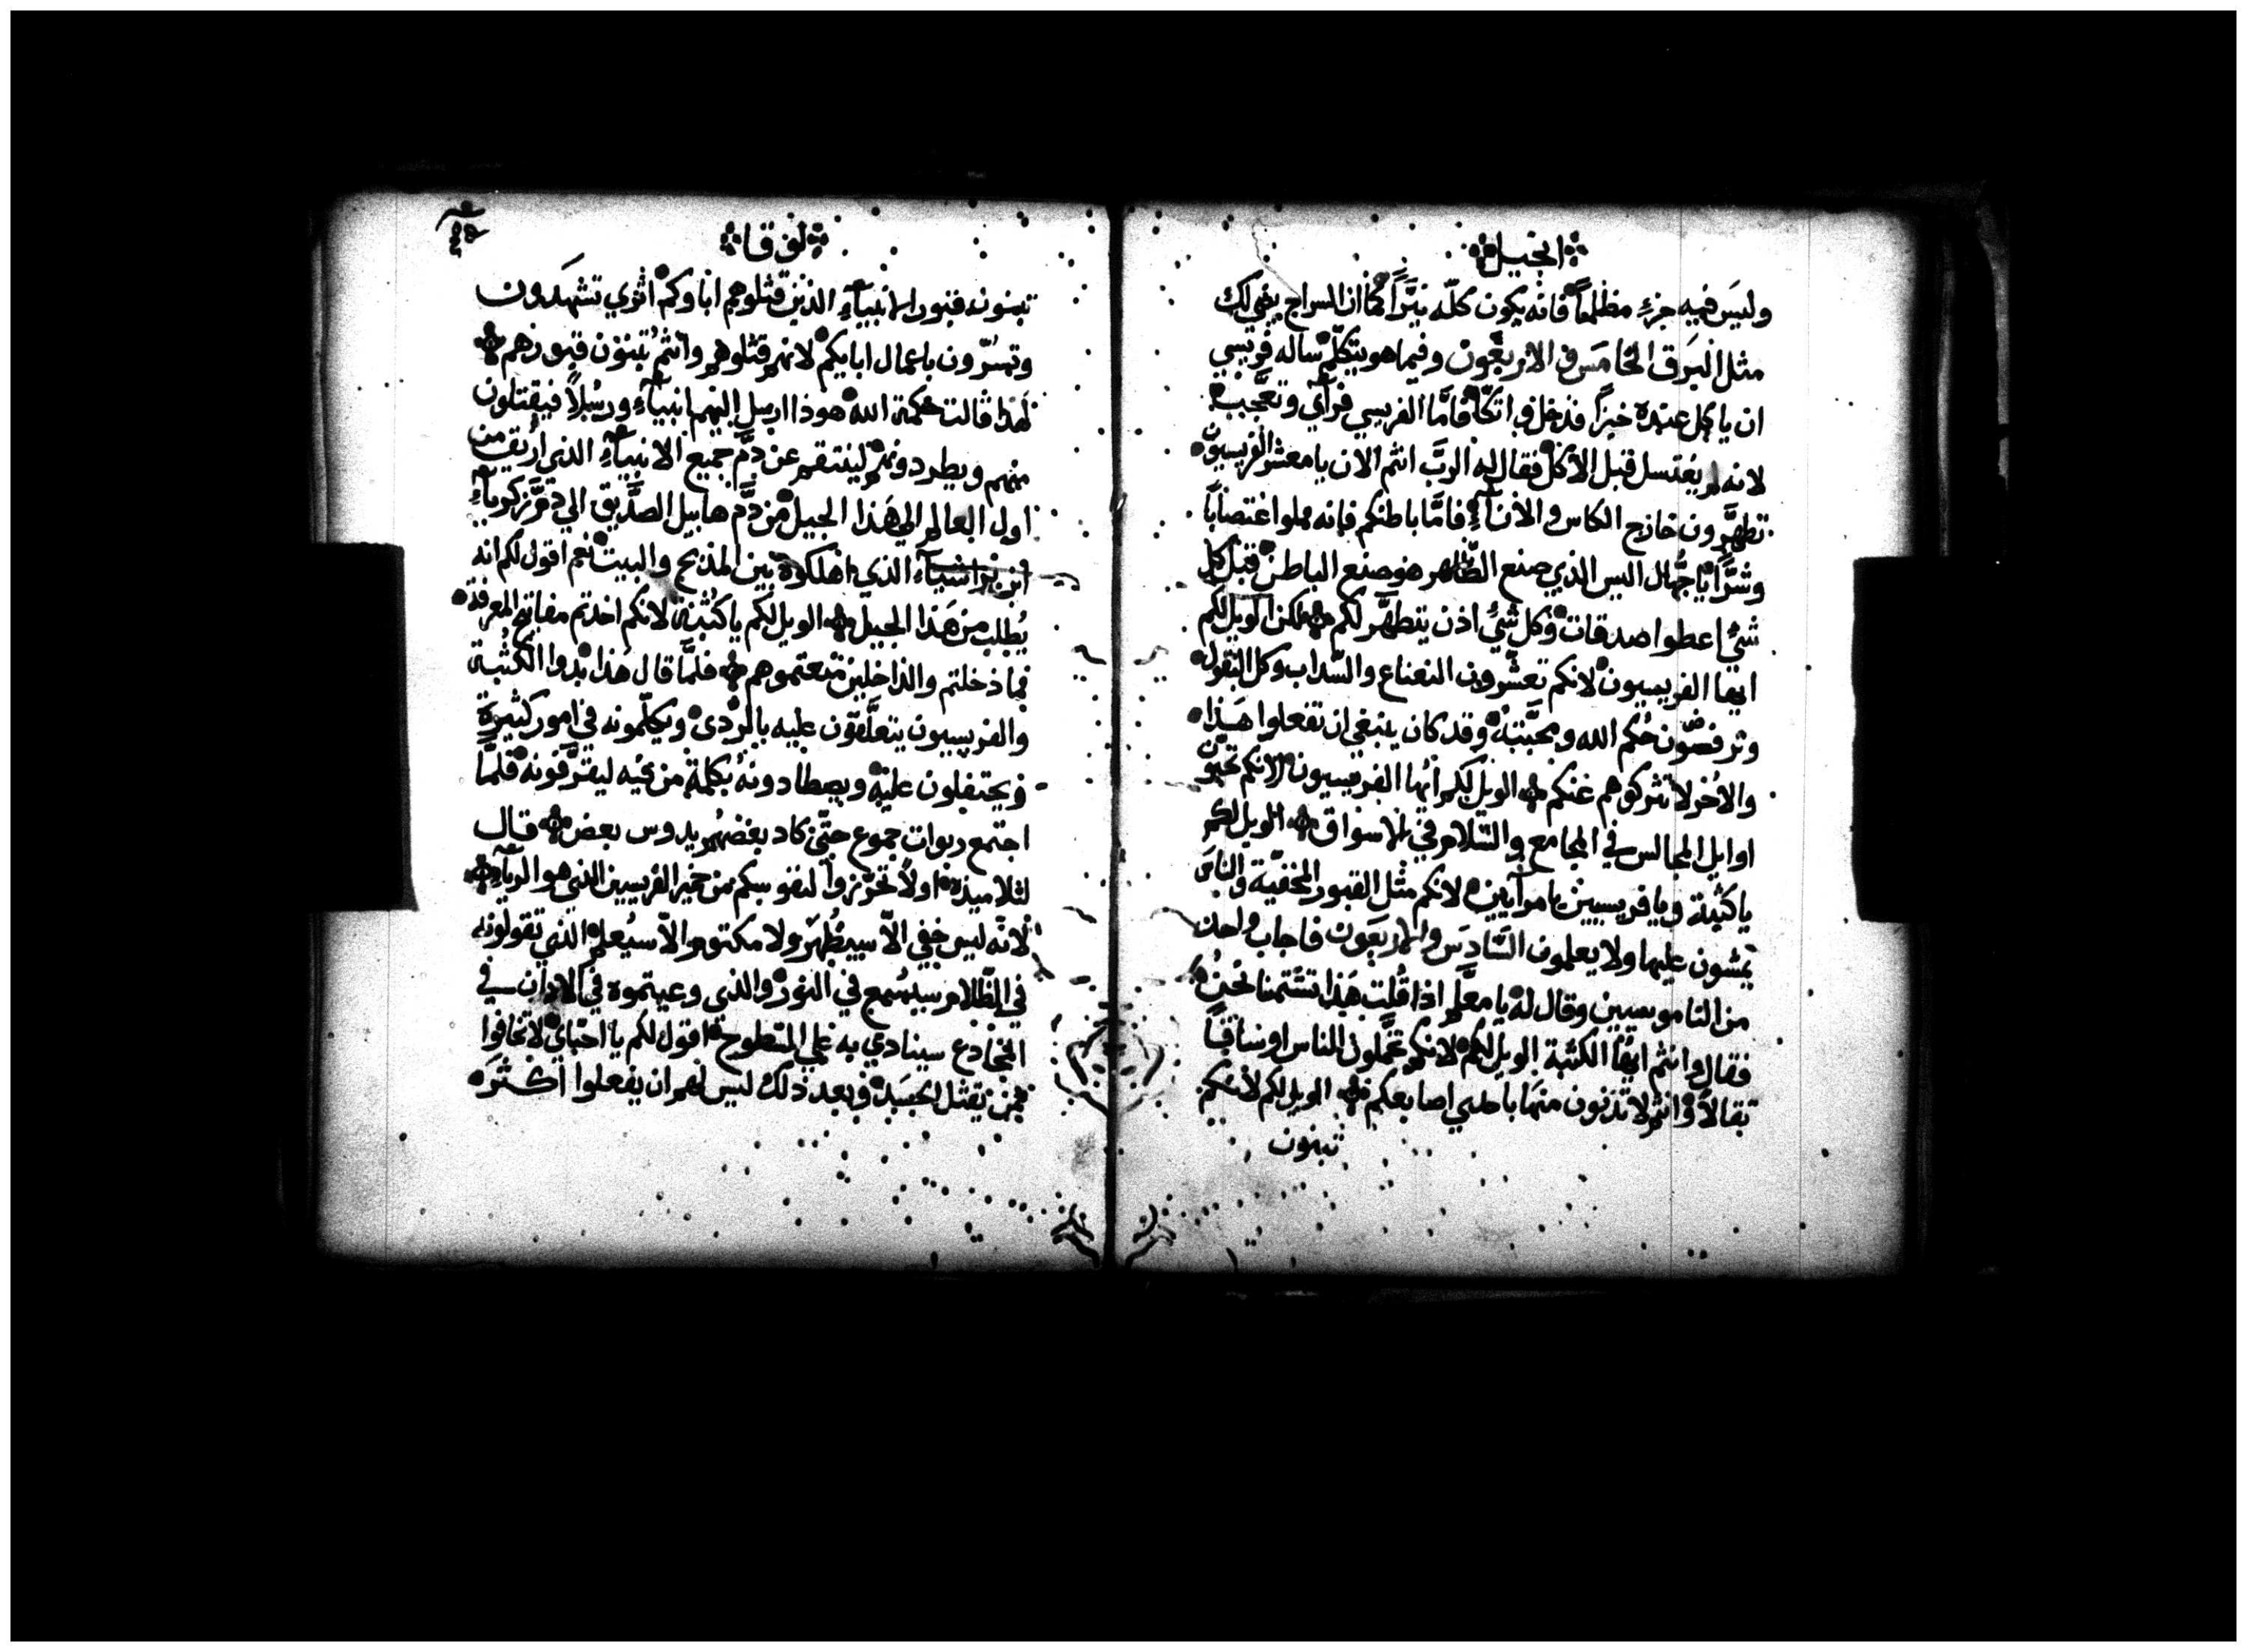 انجيل
وليس فيه جزءٍ مظلماً فانه يكون كلّه نيّراً كما ان السراج يضي لك
مثل البرق الخامس والاربعون وفيما هو يتكلّم ساله فريسي
ان ياكل عنده خبزاً فدخل واتكا فامّا الفريسي فرآي وتعجّب
لانه لم يغتسل قبل الاكل فقال له الربّ انتم الان يا معشر الفريسيون
تطهّرون خارج الكاس والانآءِ فامّا باطنكم فانه مملوا اغتصاباً
وشرّاً يا جهّال اليس الذي صنع الظاهر هو صنع الباطن قبل كل
شيٍ اعطوا صدقات وكل شيٍ اذن يتطهّر لكم لكن الويل لكم
ايها الفريسيون لانكم تعشّرون النعناع والسّداب وكل البقول
وترفضون حُكم الله ومحبّته وقد كان ينبغي ان تفعلوا هذا
والاُخر لا تتركوهم عنكم الويل لكم ايّها الفريسيون لانكم تحبّون
اوايل المجالس في المجامع والسّلام في الاسواق الويل لكم
يا كتبة ويا فريسيين يا مرآيين لانكم مثل القبور المخفيّة والناس
يمشون عليها ولا يعلمون السّادس والاربعون فاجاب واحد
من الناموسيين وقال له يا معلّم اذا قُلت هذا تشتمنا نحنُ
فقال وانتم ايّها الكتبة الويل لكم لانكم تحمّلون الناس اوساقاً
ثقالاً وانتم لا تدنون منها باحدي اصابعكم الويل لكم لانكم
تبنون
لوقا
تبنون قبور الانبيآءِ الذين قتلوهم اباوكم اثري تشهدون
وتسُرّون باعمال ابايكم لانهم قتلوهم وانتم تبنون قبورهم
لهذا قالت حكمة الله هوذا ارسل اليهم انبيآءِ ورسُلاً فيقتلون
منهم ويطردونهم لينتقم عن دمّ جميع الانبيآءِ الذي اُريق من
اول العالم الي هذا الجيل من دمّ هابيل الصدّيق الي دم زكريآءِ
ابن براشيآءِ الذي اهلكوه بين المذبح والبيت نعم اقول لكم انه
يُطلب من هذا الجيل الويل لكم يا كتبة لانكم اخدتم مفاتيح المعرفة
فما دخلتم والداخلين منعتموهم فلمّا قال هذا بدوا الكتبة
والفريسيون يتعلّقون عليه بالردى ويكلّمونه في امور كثيرةٍ
ويحتفلون عليه ويصطادونه بكلمة من فيه ليقرّفونه فلمّا
اجتمع ربوات جموع حتّى كاد بعضهُم يدوس بعض قال
لتلاميذه اولاً تحرّزوا لنفوسكم من خمير الفريسيين الذي هو الريآءِ
لانّه ليس خفي الاّ سيظُهر ولا مكتوم الاّ سيُعلم الذي تقولونه
في الظّلام سيسُمع في النور والذي وعيتموه في الادان في
المخادع سينادي به علي السّطوح اقول لكم يا احبّاي لا تخافوا
ممن يقتل الجسد وبعد ذلك ليس لهم ان يفعلوا اكثر